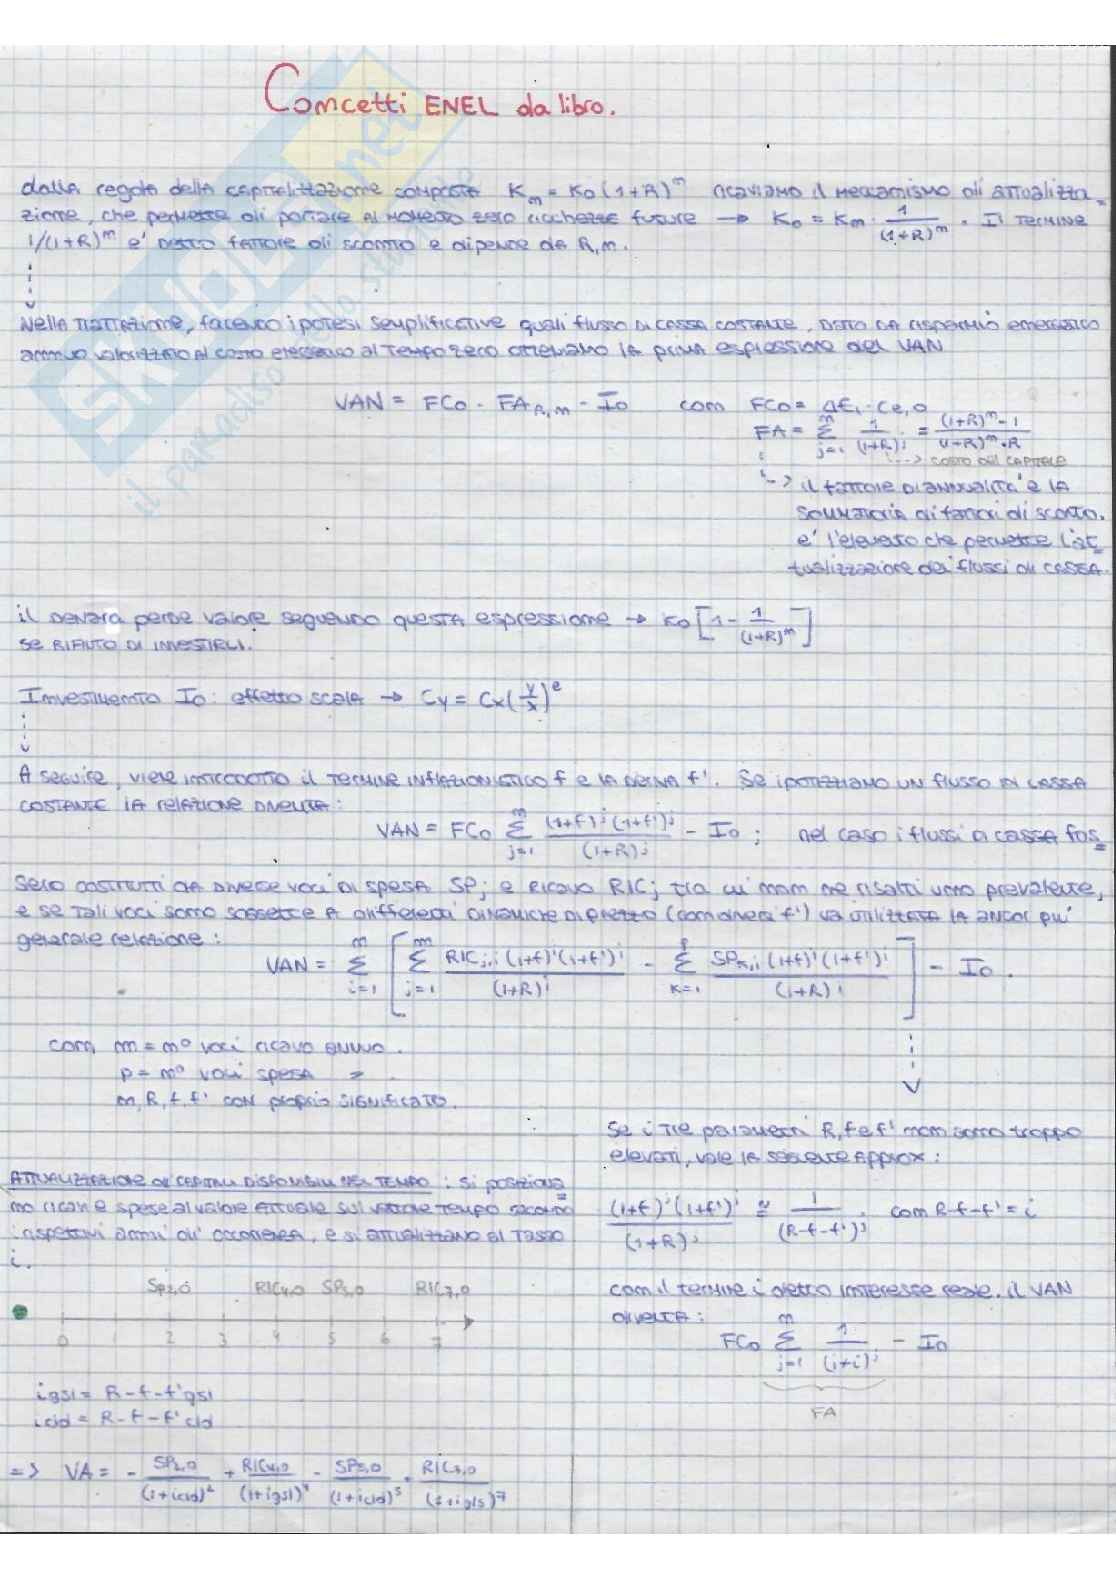 Concetti ENEL da libro.
dalla regola della capitalizzazione composta Kn = K0 (1+R)^n ricaviamo il meccanismo di attualizza-
zione, che permette di portare al momento zero ricchezze future → K0 = Kn · 1/(1+R)^n . Il termine
1/(1+R)^n e' detto fattore di sconto e dipende da R,n.
Nella trattazione, facendo ipotesi semplificative quali flusso di cassa costante, dato da risparmio energetico
annuo valorizzato al costo elettrico al tempo zero otteniamo la prima espressione del VAN
VAN = FC0 · FA R,n - I0 con FC0 = ΔE1 · Ce,0
FA = Σ j=1 n 1/(1+R)^j = (1+R)^n - 1 / (1+R)^n · R
---> costo del capitale
--> il fattore di annualita' e la
sommatoria di fattori di sconto.
e' l'elemento che permette l'at-
tualizzazione dei flussi di cassa.
il denara perde valore seguendo questa espressione → K0 [1 - 1/(1+R)^n]
se rifiuto di investirli.
Investimento I0: effetto scala → Cy = Cx (y/x)^e
A seguire, viene introdotto il termine inflazionistico f e la deriva f'. Se ipotizziamo un flusso di cassa
costante la relazione diventa:
VAN = FC0 Σ j=1 n (1+f)^j (1+f')^j / (1+R)^j - I0 ; nel caso i flussi di cassa fos-
sero costituti da diverse voci di spesa SPj e ricavo RICj tra cui non ne risalti uno prevalente,
e se tali voci sono soggette a differenti dinamiche di prezzo (con diversi f') va utilizzata la ancor piu'
generale relazione:
VAN = Σ i=1 n [ Σ j=1 m RICj,i (1+f)^i (1+f')^i / (1+R)^i - Σ k=1 p SPk,i (1+f)^i (1+f')^i / (1+R)^i ] - I0 .
con, m = n° voci ricavo annuo.
p = n° voci spesa " .
n, R, f, f' con proprio significato.
Se i tre parametri R, f e f' non sono troppo
elevati, vale la seguente approx:
(1+f)^j (1+f')^j / (1+R)^j ≅ 1 / (R-f-f')^j , con R-f-f' = i
con il termine i detto interesse reale. il VAN
diventa:
FC0 Σ j=1 n 1/(i+i)^j - I0
FA
Attualizzazione di capitali disponibili nel tempo : si posiziona-
no ricavi e spese al valore attuale sul vettore tempo secondo
i rispettivi anni di' occorrenza, e si attualizzano al tasso
i.
SP2,0 RIC4,0 SP5,0 RIC7,0
0 1 2 3 4 5 6 7
igsl = R-f-f'gsl
icld = R-f-f'cld
=> VA = - SP2,0/(1+icld)^2 + RIC4,0/(1+igsl)^4 - SP5,0/(1+icld)^5 + RIC7,0/(1+igls)^7
SKUOLA.net
il paradiso dello studente